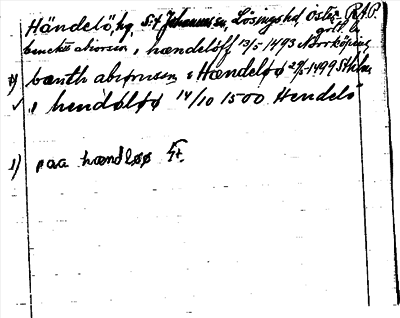 Händelö, hg S:t Johannes sn Lösings hd Österg. RAP.
bencktt abiornsn i hændelöff 13/5 1493 Norrköping
2) bænth abiørnsen i Hændeløø 29/5 1499 Sthlm
✓ " hendøløø 14/10 1500 Hendelö
1) paa hændløø